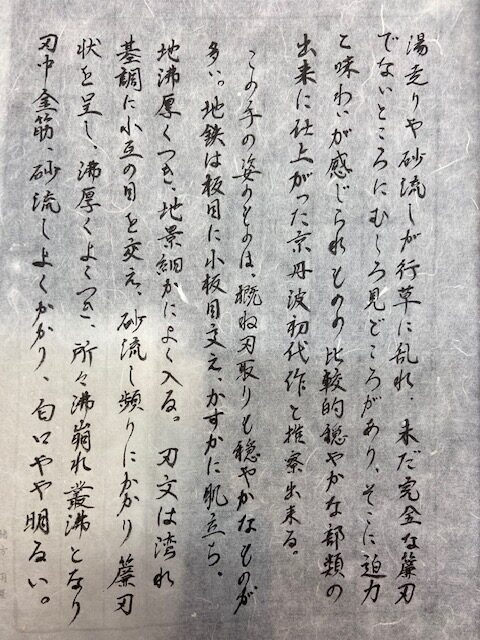 湯走りや砂流しが行草に乱れ、未だ完全な簾刃
でないところにむしろ見どころがあり、そこに迫力
と味わいが感じられものの比較的穏やかな部類の
出来に仕上がった京丹波初代作と推察出来る。
この手の姿のものは、概ね刃取りも穏やかなものが
多い。地鉄は板目に小板目交え、かすかに肌立ち、
地沸厚くつき、地景細かによく入る。刃文は湾れ
基調に小互の目を交え、砂流し頻りにかかり簾刃
状を呈し、沸厚くよくつき、所々沸崩れ叢沸となり
刃中金筋、砂流しよくかかり、匂口やや明るい。